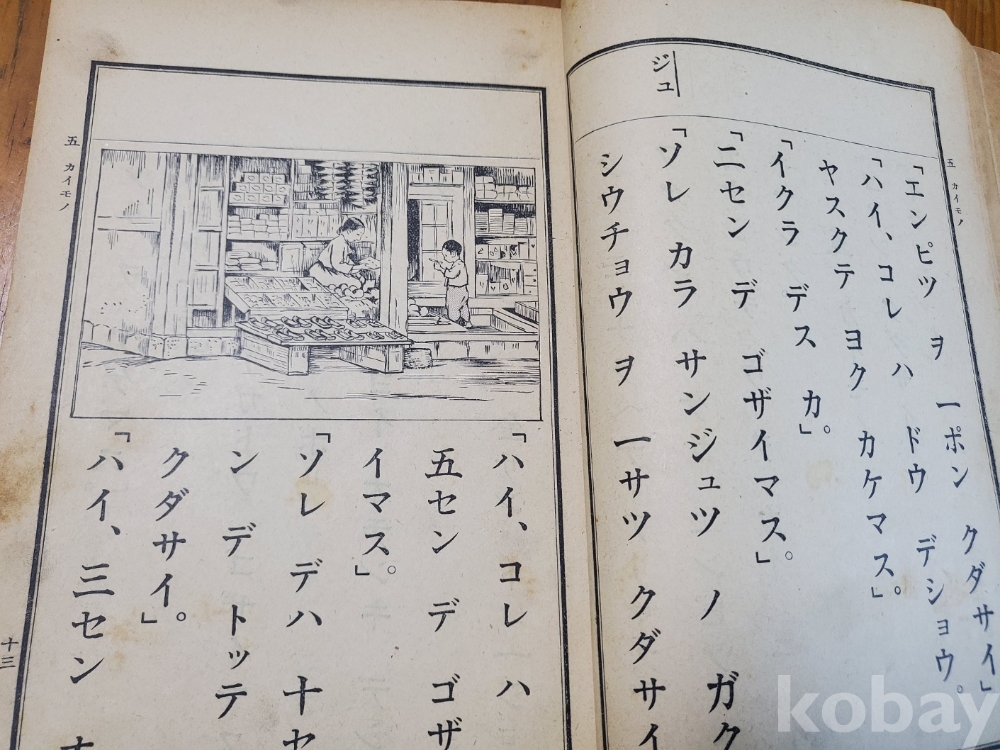 五 カイモノ
「エンピツ ヲ 一ポン クダサイ」
「ハイ、コレ ハ ドウ デショウ。
ヤスクテ ヨク カケマス。」
「イクラ デス カ。」
「二セン デ ゴザイマス。」
ジュ
「ソレ カラ サンジュツ ノ ガク
シウチョウ ヲ 一サツ クダサイ
「ハイ、コレ ハ
五セン デ ゴザ
イマス。」
「ソレ デハ 十セ
ン デ トッテ
クダサイ。」
「ハイ、三セン
五 カイモノ
十三
kobay